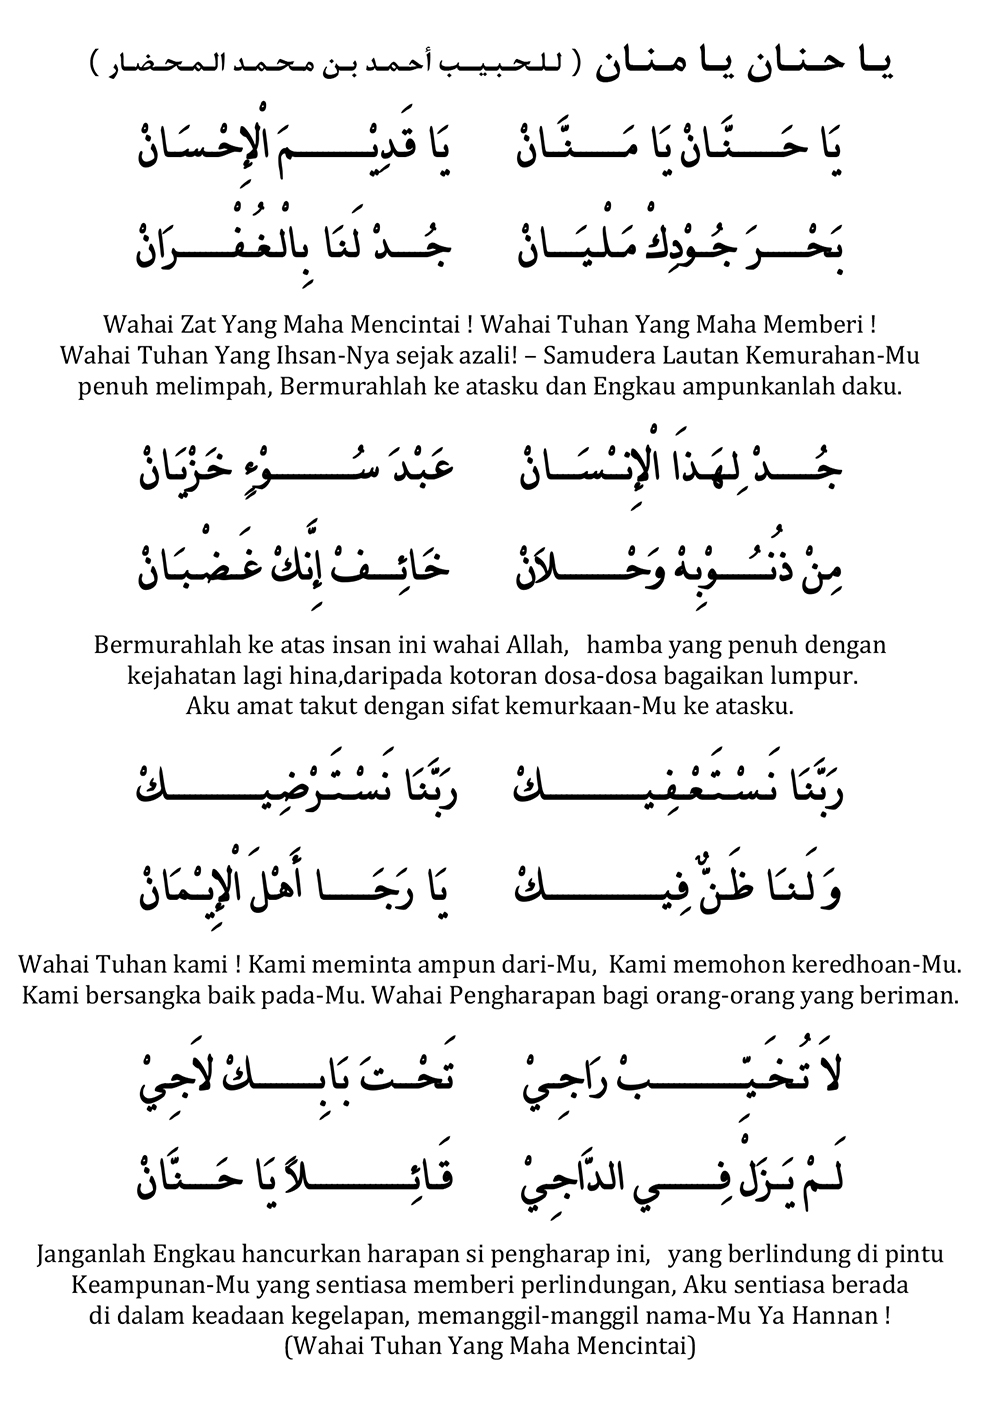 يا حنان يا منان ( للحبيب أحمد بن محمد المحضار )
يَا حَنَّانْ يَا مَنَّانْ يَا قَدِيْمَ الْإِحْسَانْ
بَحْرَ جُوْدِكْ مَلْيَانْ جُدْ لَنَا بِالْغُفْرَانْ
Wahai Zat Yang Maha Mencintai ! Wahai Tuhan Yang Maha Memberi !
Wahai Tuhan Yang Ihsan-Nya sejak azali! – Samudera Lautan Kemurahan-Mu
penuh melimpah, Bermurahlah ke atasku dan Engkau ampunkanlah daku.
جُدْ لِهَذَا الْإِنْسَانْ عَبْدَ سُوْءٍ خَزْيَانْ
مِنْ ذُنُوْبِهْ وَحْلَانْ خَائِفْ إِنَّكْ غَضْبَانْ
Bermurahlah ke atas insan ini wahai Allah, hamba yang penuh dengan
kejahatan lagi hina,daripada kotoran dosa-dosa bagaikan lumpur.
Aku amat takut dengan sifat kemurkaan-Mu ke atasku.
رَبَّنَا نَسْتَعْفِيكْ رَبَّنَا نَسْتَرْضِيكْ
وَلَنَا ظَنٌّ فِيكْ يَا رَجَا أَهْلَ الْإِيْمَانْ
Wahai Tuhan kami ! Kami meminta ampun dari-Mu, Kami memohon keredhoan-Mu.
Kami bersangka baik pada-Mu. Wahai Pengharapan bagi orang-orang yang beriman.
لاَ تُخَيِّبْ رَاجِيْ تَحْتَ بَابِكْ لاَجِيْ
لَمْ يَزَلْ فِي الدَّاجِيْ قَائِلاً يَا حَنَّانْ
Janganlah Engkau hancurkan harapan si pengharap ini, yang berlindung di pintu
Keampunan-Mu yang sentiasa memberi perlindungan, Aku sentiasa berada
di dalam keadaan kegelapan, memanggil-manggil nama-Mu Ya Hannan !
(Wahai Tuhan Yang Maha Mencintai)